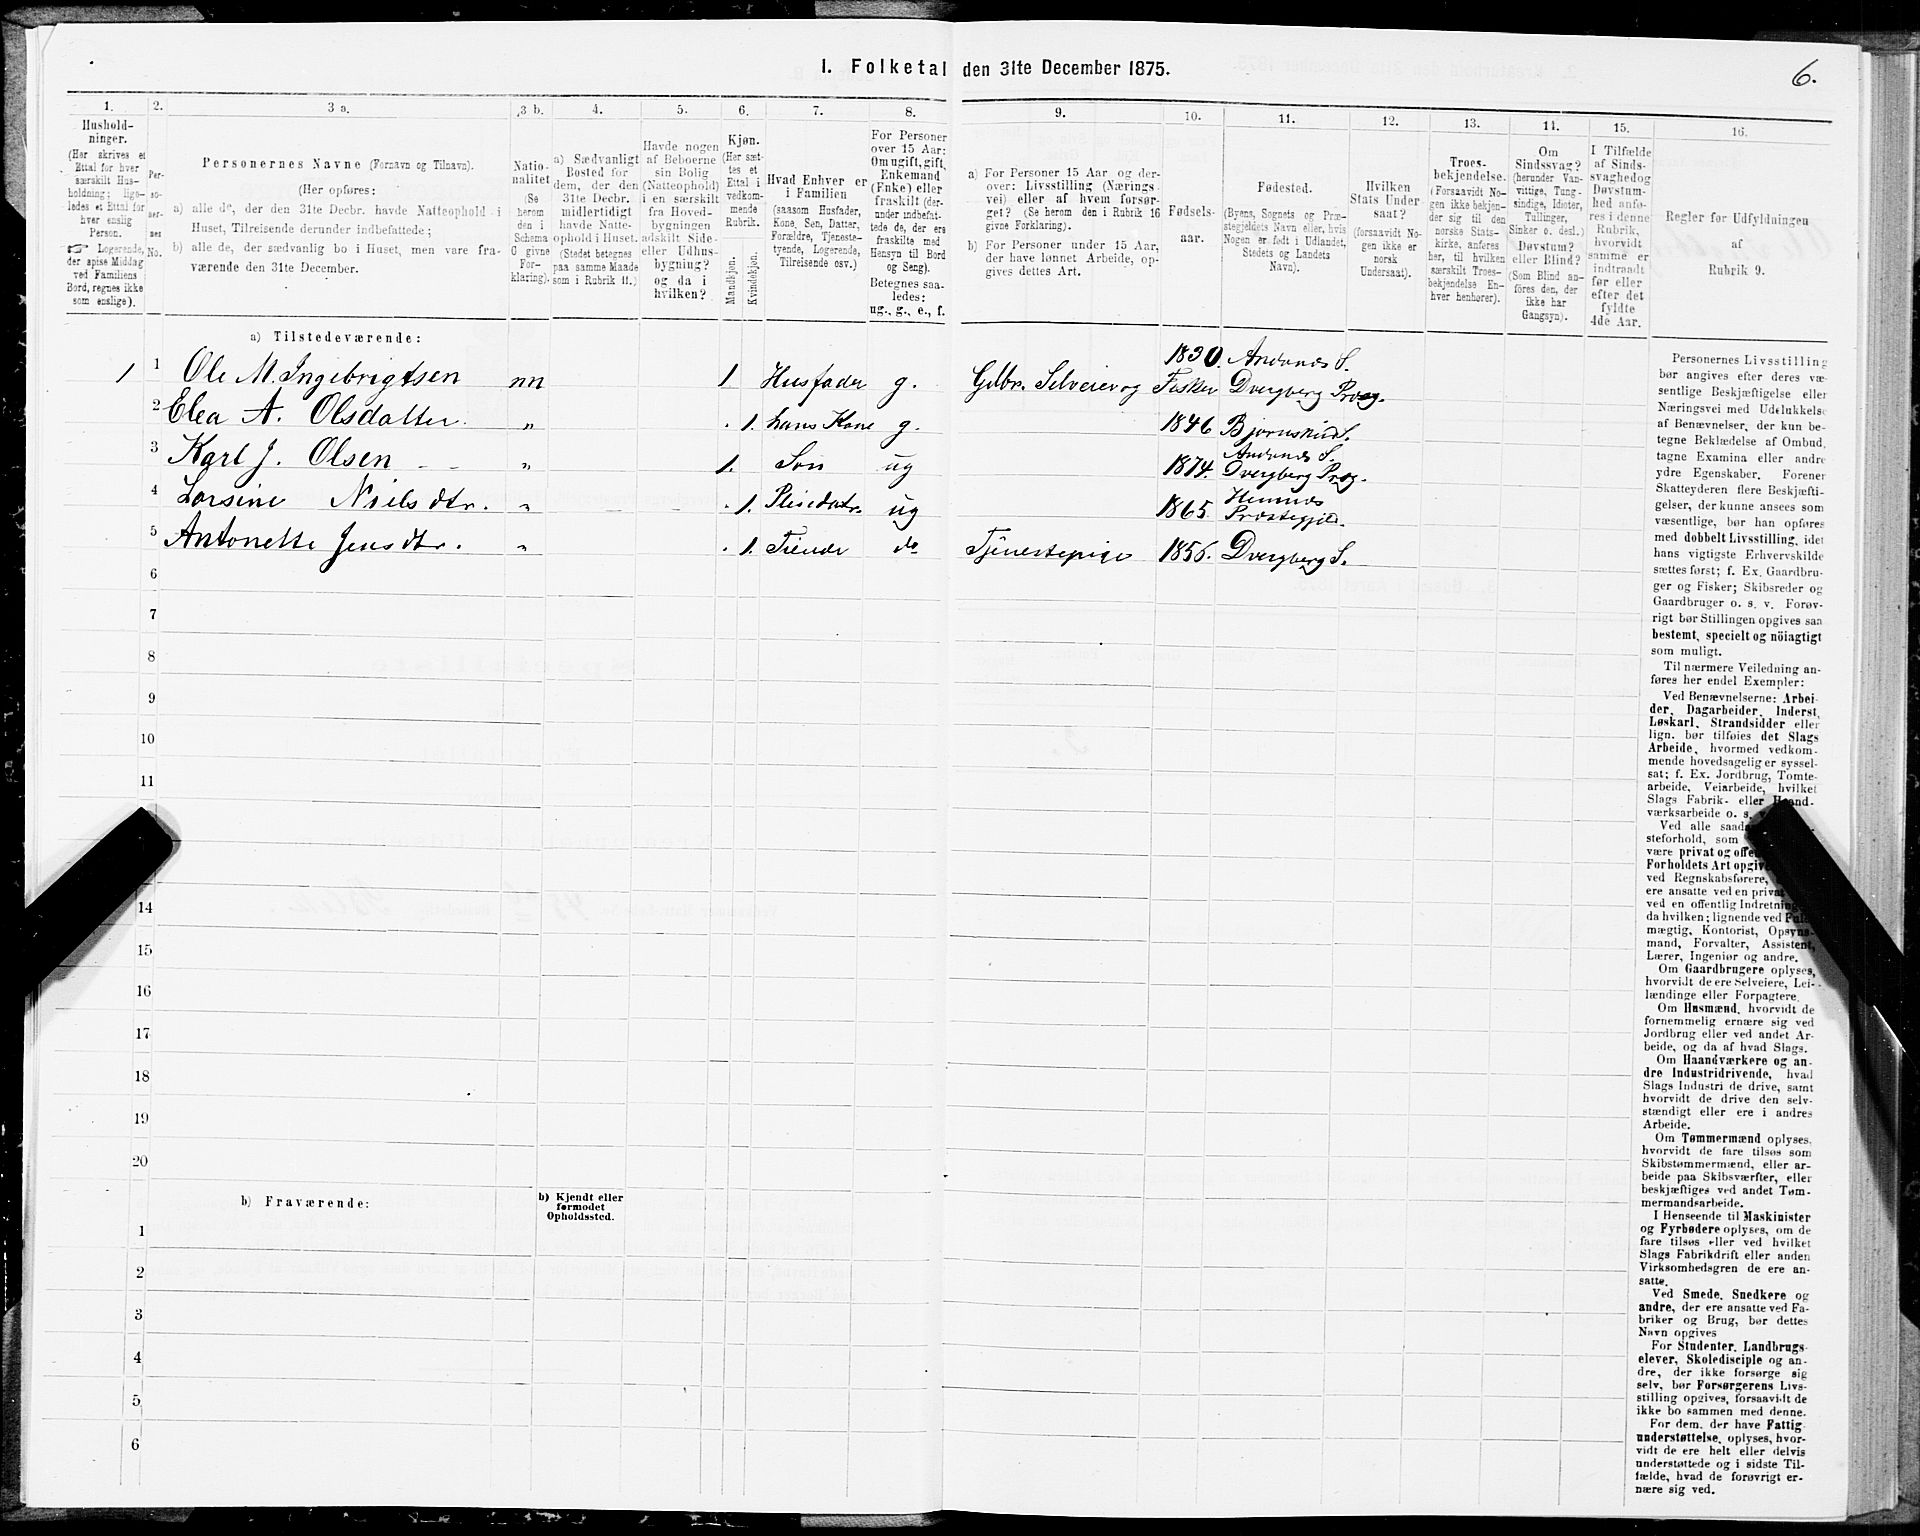 I. Folketal den 31te December 1875.
6.
1.
Hushold-
ninger.
(Her skrives et
Ettal for hver
særskilt Hus-
holdning; lige-
ledes et Ettal for
hver enslig
Person.
☞ Logerende,
der spise Middag
ved Familiens
Bord, regnes ikke
som enslige).
2.
Per-
so-
ner-
nes
No.
3 a.
Personernes Navne (Fornavn og Tilnavn).
(Her opføres:
a) alle de, der den 31te Decbr. havde Natteophold i
Huset, Tilreisende derunder indbefattede;
b) alle de, der sædvanlig bo i Huset, men vare fra-
værende den 31te December.
3 b.
Natio-
nalitet
(Se
herom
den i
Schema
G givne
For-
klaring).
4.
a) Sædvanligt
Bosted for
dem, der den
31te Decbr.
midlertidigt
havde Natte-
ophold i Huset.
(Stedet betegnes
paa samme Maade
som i Rubrik 11.)
5.
Havde nogen
af Beboerne
sin Bolig
(Natteophold)
i en særskilt
fra Hoved-
bygningen
adskilt Side-
eller Udhus-
bygning?
og da i
hvilken?
6.
Kjøn.
(Her sæt-
tes et
Ettal i
vedkom-
mende
Rubrik.
Mandkjøn.
Kvindekjøn.
7.
Hvad Enhver er
i Familien
(saasom Husfader,
Kone, Søn, Datter,
Forældre, Tjeneste-
tyende, Logerende,
Tilreisende osv.)
8.
For Personer
over 15 Aar:
Om ugift, gift,
Enkemand
(Enke) eller
fraskilt (der-
under indbefat-
tede de, der ere
fraskilte med
Hensyn til Bord
og Seng).
Betegnes saa-
ledes:
ug., g., e., f.
9.
a) For Personer 15 Aar og der-
over: Livsstilling (Nærings-
vei) eller af hvem forsør-
get? (Se herom den i Rubrik 16
givne Forklaring).
b) For Personer under 15 Aar,
der have lønnet Arbeide, op-
gives dettes Art.
10.
Fødsels-
aar.
11.
Fødested.
(Byens, Sognets og Præ-
stegjeldets Navn eller, hvis
Nogen er født i Udlandet,
Stedets og Landets
Navn).
12.
Hvilken
Stats Under-
saat?
(forsaavidt No-
gen ikke er
norsk
Undersaat).
13.
Troes-
bekjendelse.
(Forsaavidt No-
gen ikke bekjen-
der sig til den
norske Stats-
kirke, anføres
her, til hvilken
særskilt Troes-
bekjendelse En-
hver henhører).
14.
Om
Sindssvag?
(herunder Van-
vittige, Tung-
sindige, Idioter,
Tullinger,
Sinker o. desl.)
Døvstum?
eller Blind?
(Som Blind an-
føres den, der
ikke har
Gangsyn).
15.
I Tilfælde
af Sinds-
svaghed og
Døvstum-
hed anfø-
res i denne
Rubrik,
hvorvidt
samme er
indtraadt
før eller
efter det
fyldte
4de Aar.
16.
Regler for Udfyldningen
af
Rubrik 9.
a) Tilstedeværende:
1 1 Ole M. Ingebrigtsen nn 1 Husfader g. Gdbr. Selveier og Fisker 1830. Andenæs S. Dvergberg Præg.
2 Elea A. Olsdatter. " 1. hans Kone g. 1846 Bjørnskind S.
3 Karl J. Olsen " 1. Søn ug 1874. Andenæs S. Dvergberg Præg.
4 Lorsine Nielsdtr. " 1. Pleiedatr. ug 1865. Hemnæs Præstegjeld.
5 Antonette Jensdtr. " 1. Tiende do Tjenestepige 1856. Dvergberg S.
6
7
8
9
10
11
14
15
16
17
18
19
20
b) Fraværende:
b) Kjendt eller
formodet
Opholdssted.
1
2
3
4
5
6
Personernes Livsstilling
bør angives efter deres væ-
sentlige Beskjæftigelse eller
Næringsvei med Udelukkelse
af Benævnelser, der kun be-
tegne Beklædelse af Ombud,
tagne Examina eller andre
ydre Egenskaber. Forener
Skatteyderen flere Beskjæfti-
gelser, der kunne ansees som
væsentlige, bør han opføres
med dobbelt Livsstilling, idet
hans vigtigste Erhvervskilde
sættes først; f. Ex. Gaardbru-
ger og Fisker; Skibsreder og
Gaardbruger o. s. v. Forøv-
rigt bør Stillingen opgives saa
bestemt, specielt og nöiagtigt
som muligt.
Til nærmere Veiledning an-
føres her endel Exempler:
Ved Benævnelserne: Arbei-
der, Dagarbeider, Inderst,
Løskarl, Strandsidder eller
lign. bør tilføies det Slags
Arbeide, hvormed vedkom-
mende hovedsagelig er syssel-
sat; f. Ex. Jordbrug, Tomte-
arbeide, Veiarbeide, hvilket
Slags Fabrik- eller Haand-
værksarbeide o. s.
Ved alle saada
steforhold, som
være privat og offe
Forholdets Art opgiv
ved Regnskabsførere,
ere ansatte ved en privat
ved en offentlig Indretning
da hvilken; lignende ved Fuld-
mægtig, Kontorist, Opsyns-
mand, Forvalter, Assistent,
Lærer, Ingeniør og andre.
Om Gaardbrugere oplyses,
hvorvidt de ere Selveiere, Lei-
lændinge eller Forpagtere.
Om Husmænd, hvorvidt de
fornemmelig ernære sig ved
Jordbrug eller ved andet Ar-
beide, og da af hvad Slags.
Om Haandværkere og an-
dre Industridrivende, hvad
Slags Industri de drive, samt
hvorvidt de drive den selv-
stændigt eller ere i andres
Arbeide.
Om Tømmermænd oplyses,
hvorvidt de fare tilsøs som
Skibstømmermænd, eller ar-
beide paa Skibsværfter, eller
beskjæftiges ved andet Tøm-
mermandsarbeide.
I Henseende til Maskinister
og Fyrbødere oplyses, om de
fare tilsøs eller ved hvilket
Slags Fabrikdrift eller anden
Virksomhedsgren de ere an-
satte.
Ved Smede, Snedkere og
andre, der ere ansatte ved Fa-
briker og Brug, bør dettes
Navn opgives
For Studenter, Landbrugs-
elever, Skoledisciple og an-
dre, der ikke forsørge sig
selv, bør Forsørgerens Livs-
stilling opgives, forsaavidt de
ikke bo sammen med denne.
For dem, der have Fattig-
understøttelse, oplyses, hvor-
vidt de ere helt eller delvis
understøttede og i sidste Til-
fælde, hvad de forøvrigt er-
nære sig ved.